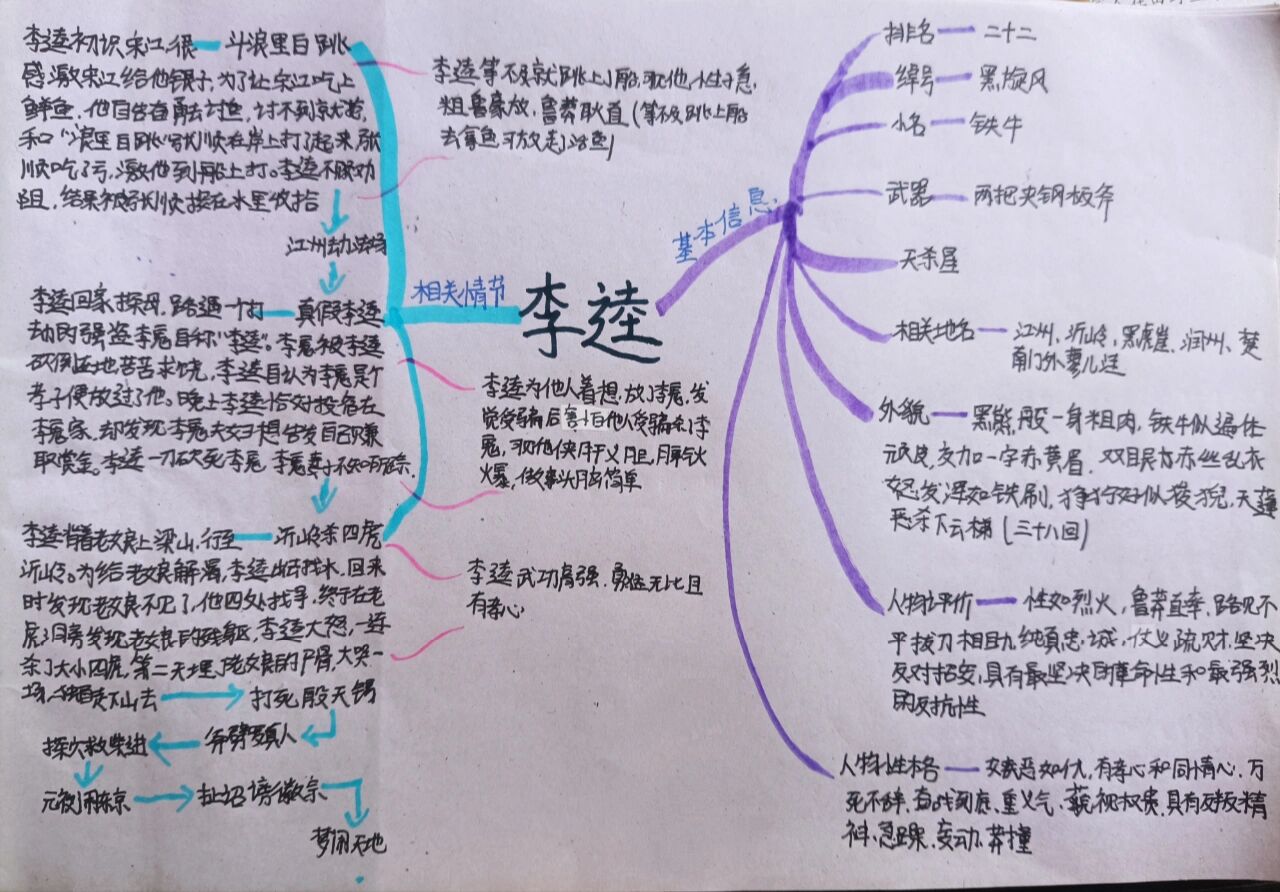 李逵
相关情节
李逵初识宋江,很 斗浪里白跳
感激宋江给他银子,为了让宋江吃上
鲜鱼,他自告奋勇去讨鱼,讨不到就抢,
和“浪里白跳”张顺在岸上打了起来,张
顺吃了亏,激他到船上打。李逵不顾劝
阻,结果被张顺按在水里收拾
李逵等不及就跳上了船,可见他性子急,
粗鲁豪放,鲁莽耿直(等不及跳上船
去拿鱼 放走了活鱼)
江州劫法场
李逵回家探母,路遇一打 真假李逵
劫的强盗李鬼自称“李逵”。李鬼被李逵
砍倒在地苦苦求饶,李逵自认为李鬼是个
孝子便放过了他。晚上李逵恰好投宿在
李鬼家,却发现李鬼夫妇想告发自己赚
取赏金。李逵一刀砍死李鬼,李鬼妻子不知所踪.
李逵为他人着想,放了李鬼,发
觉受骗后害怕他人受骗杀了李
鬼,可见他侠肝义胆,脾气火
爆,做事头脑简单
李逵背着老娘上梁山,行至 沂岭杀四虎
沂岭。为给老娘解渴,李逵出去找水,回来
时发现老娘不见了,他四处找寻,终于在老
虎洞旁发现老娘的残躯,李逵大怒,一连
杀了大小四虎,第二天埋了老娘的尸骨,大哭一
场,独自下山去 打死殷天锡
李逵武功高强,勇猛无比且
有孝心
斧劈罗真人 探穴救柴进
元夜闹东京 扯诏谤徽宗
梦闹天地
基本信息
排名 二十二
绰号 黑旋风
小名 铁牛
武器 两把夹钢板斧
天杀星
相关地名 江州、沂岭、黑虎崖、润州、楚
南门外蓼儿洼
外貌 黑熊般一身粗肉,铁牛似遍体
顽皮,交加一字赤黄眉,双眼赤丝乱系
怒发浑如铁刷,狰狞好似狻猊,天蓬
恶杀下云梯(三十八回)
人物评价 性如烈火,鲁莽直率,路见不
平拔刀相助,纯真忠诚,仗义疏财,坚决
反对招安,具有最坚决的革命性和最强烈
的反抗性
人物性格 嫉恶如仇,有孝心和同情心,万
死不辞,奋战到底、重义气、藐视权贵,具有反叛精
神、急躁、妄动、莽撞